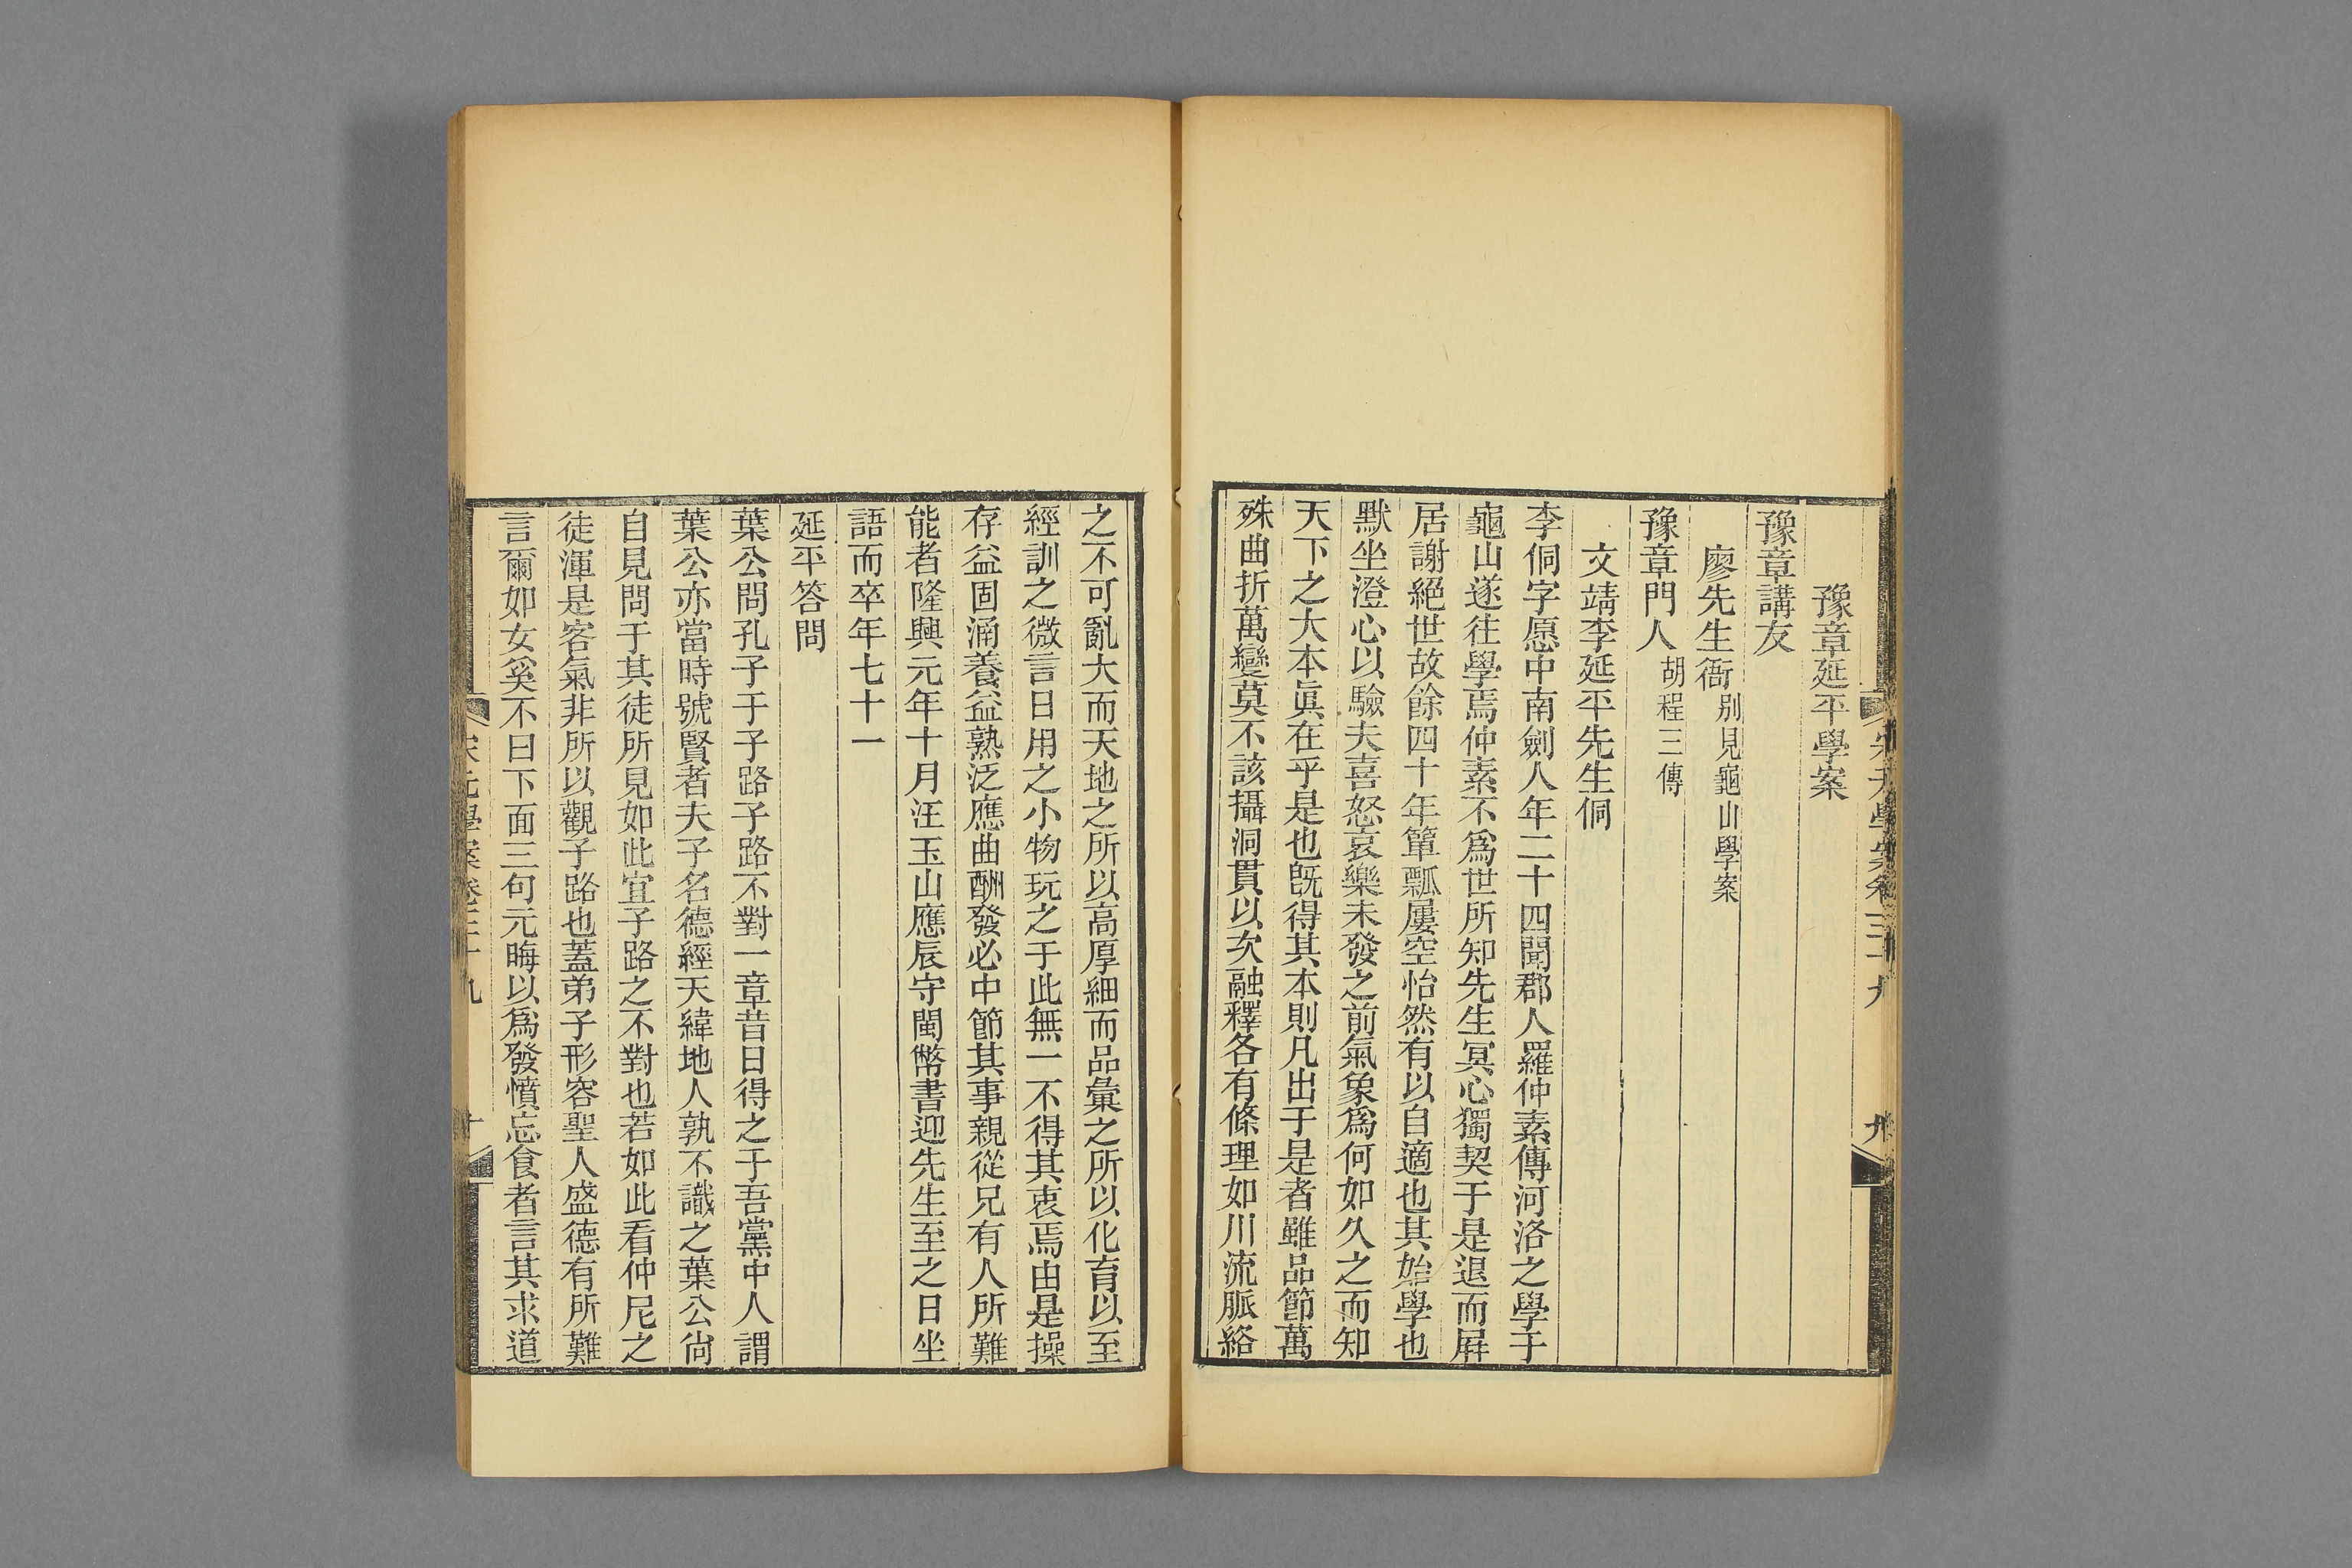 豫章延平學案
豫章講友
廖先生衙別見龜山學案
豫章門人胡程三傳
文靖李延平先生侗
李侗字愿中南劍人年二十四聞郡人羅仲素傳河洛之學于
龜山遂往學焉仲素不爲世所知先生冥心獨契于是退而屛
居謝絕世故餘四十年簞瓢屢空怡然有以自適也其始學也
默坐澄心以驗夫喜怒哀樂未發之前氣象爲何如久之而知
天下之大本眞在乎是也旣得其本則凡出于是者雖品節萬
殊曲折萬變莫不該攝洞貫以次融釋各有條理如川流脈絡
之不可亂大而天地之所以高厚細而品彙之所以化育以至
經訓之微言日用之小物玩之于此無一不得其衷焉由是操
存益固涵養益熟泛應曲酬發必中節其事親從兄有人所難
能者隆興元年十月汪玉山應辰守閩幣書迎先生至之日坐
語而卒年七十一
延平答問
葉公問孔子于子路子路不對一章昔日得之于吾黨中人謂
葉公亦當時號賢者夫子名德經天緯地人孰不識之葉公尙
自見問于其徒所見如此宜子路之不對也若如此看仲尼之
徒渾是客氣非所以觀子路也蓋弟子形容聖人盛德有所難
言爾如女奚不曰下面三句元晦以爲發憤忘食者言其求道
宋元學案卷三十九
十